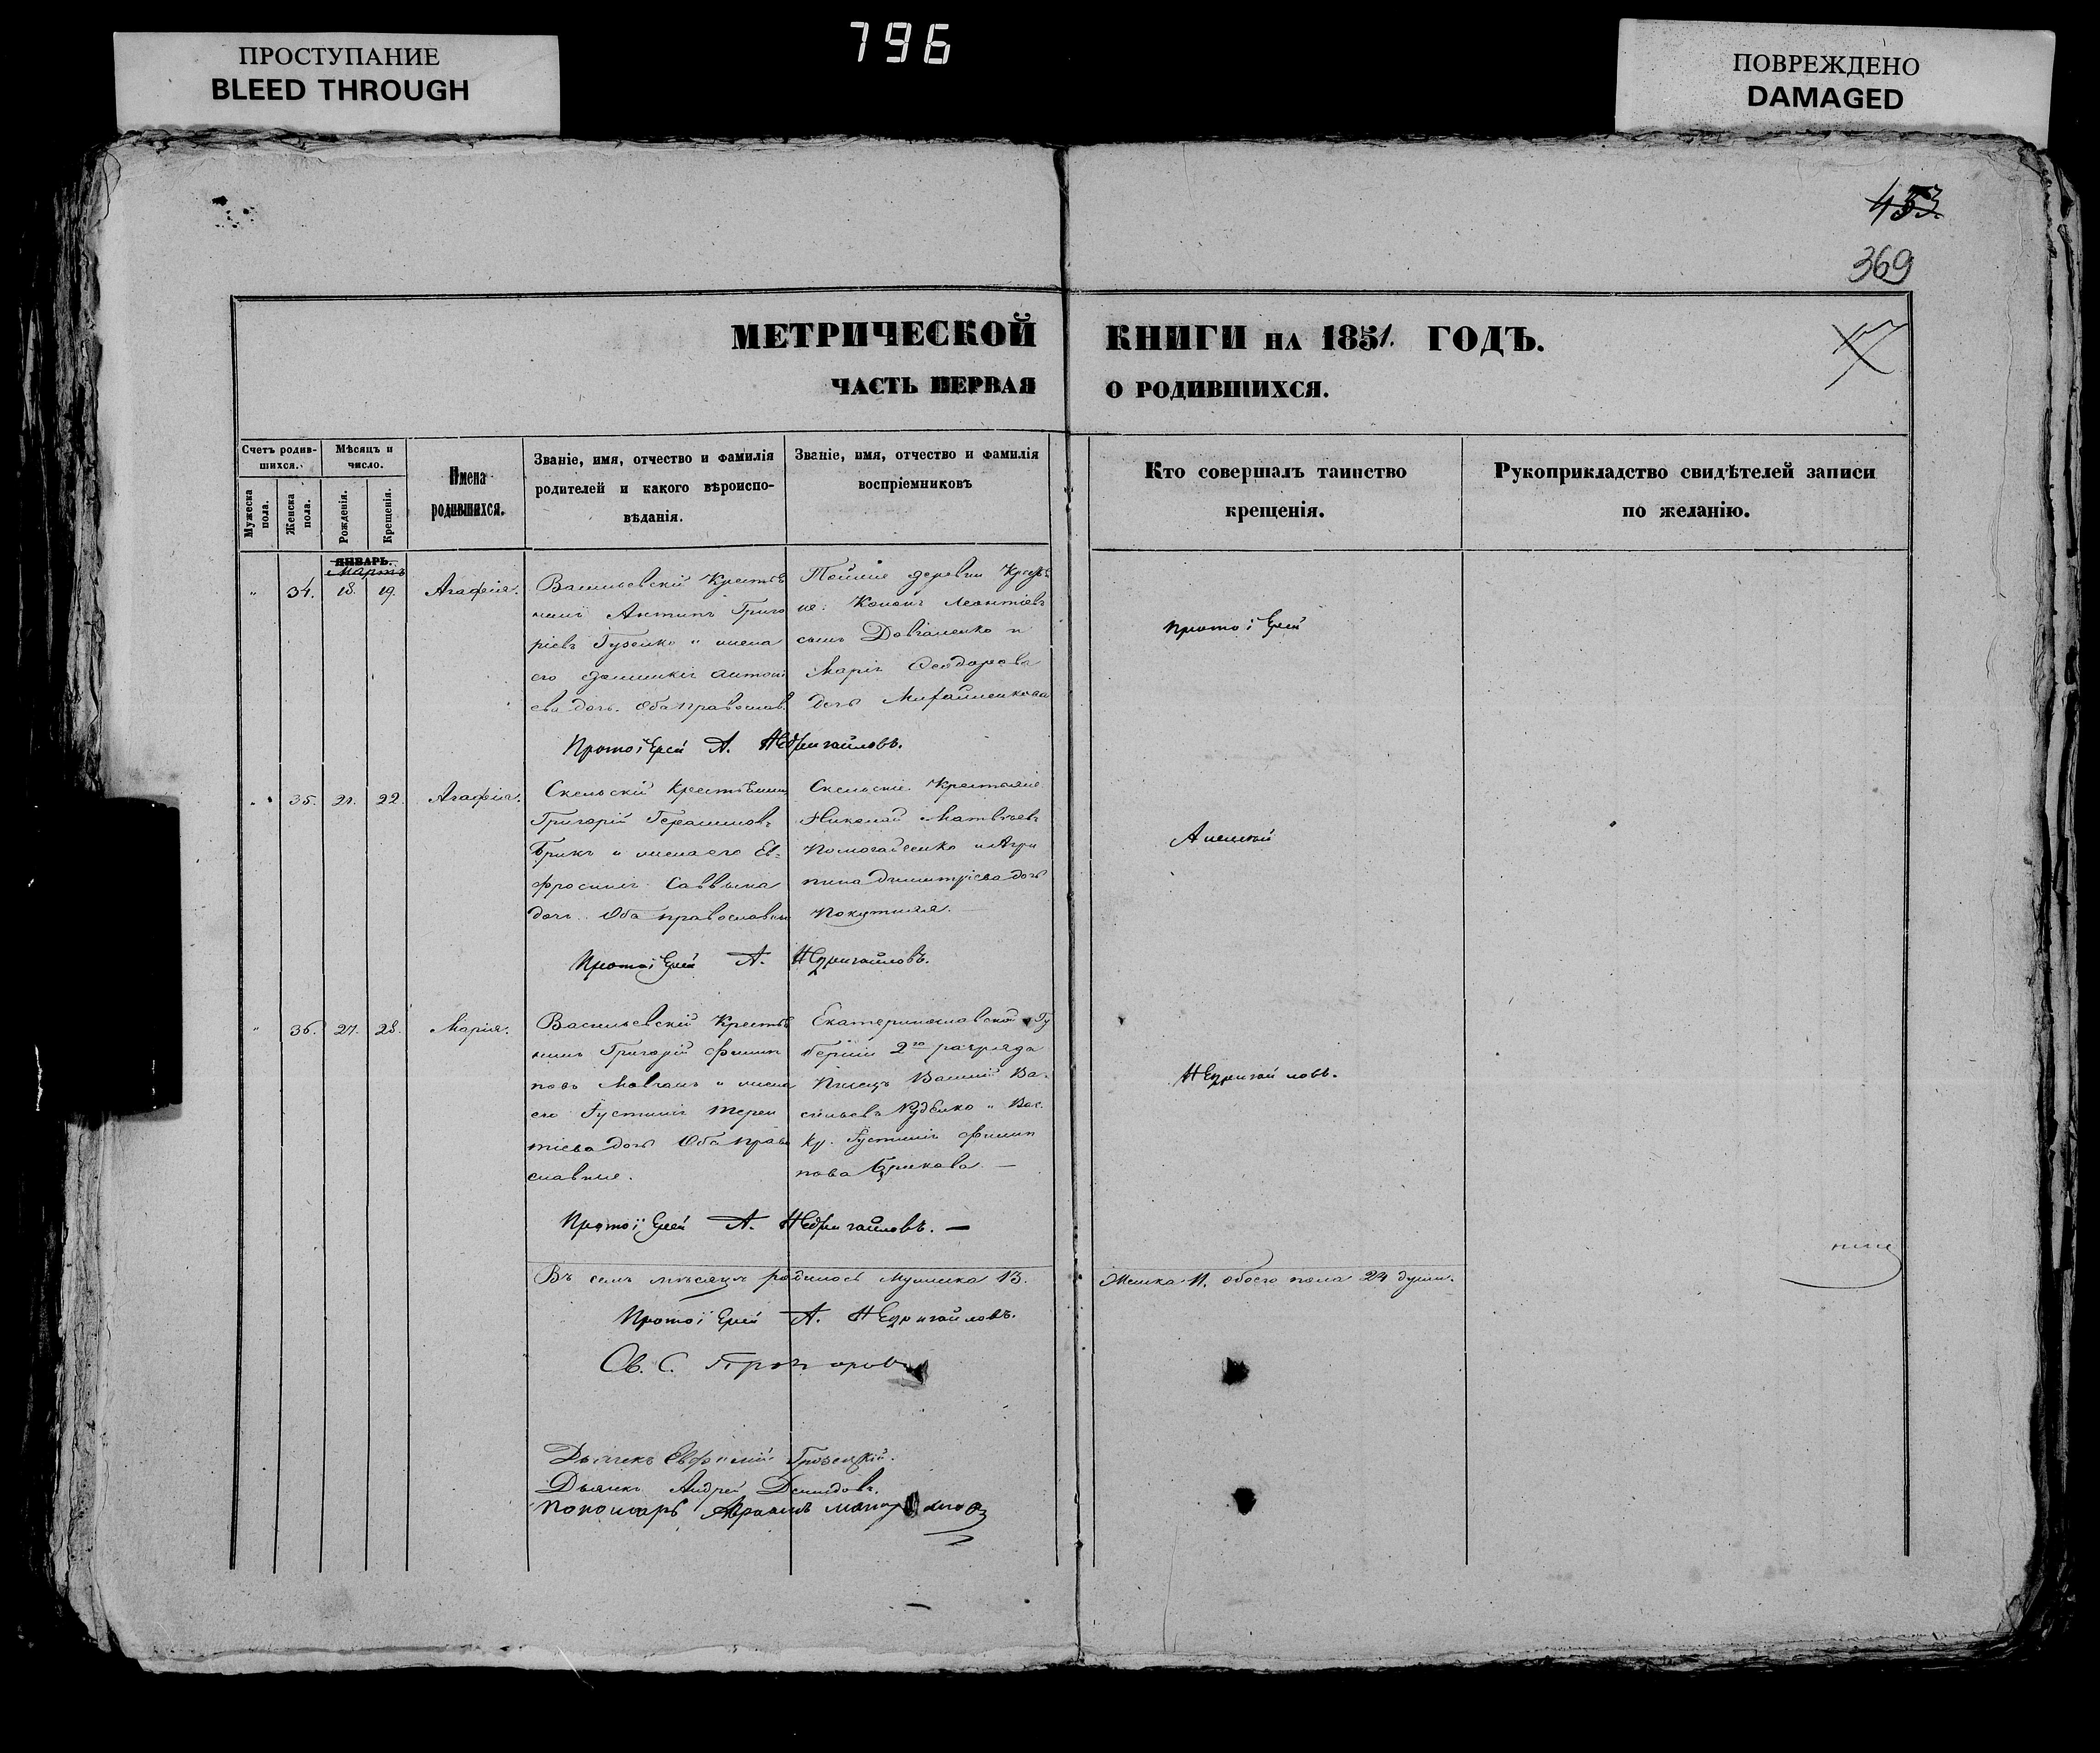 796
ПРОСТУПАНИЕ
BLEED THROUGH
ПОВРЕЖДЕНО
DAMAGED
453
369
МЕТРИЧЕСКОЙ КНИГИ НА 1851. ГОДЪ.
ЧАСТЬ ПЕРВАЯ О РОДИВШИХСЯ.
Счетъ родив-
шихся.
Мужеска
пола.
Женска
пола.
Мѣсяцъ и
число.
Рожденія.
Крещенія.
Имена
родившихся.
Званіе, имя, отчество и фамилія
родителей и какого вѣроиспо-
вѣданія.
Званіе, имя, отчество и фамилія
воспріемниковъ
Кто совершалъ таинство
крещенія.
Рукоприкладство свидѣтелей записи
по желанію.
ЯНВАРЬ.
Мартъ
" 34. 18. 19. Агафія.
Васильевскій Крестья
нинъ Антипъ Григо
ріевъ Гузенко и жена
его
ева дочь. Оба православ.
Тойже деревни Крестья
не: Кононъ Леонтіевъ
сынъ Довгаленко и
Марія Феодорова
дочь Михайленкова
Протоіерей
Протоіерей А. Недригайловъ.
" 35. 21. 22. Агафія.
Скельскій Крестьянинъ
Григорій Герасимовъ
Брикъ и жена его Ев-
фросинія Саввина
дочь. Оба православны
Скельскіе Крестьяне
Николай Матвѣевъ
Помогайленко и Агри
пина Димитріева дочь
Покутняя.
Алексій
Протоіерей А. Недригайловъ.
" 36. 27. 28. Марія.
Васильевскій Крестья
нинъ Григорій Филип
повъ Мовчанъ и жена
его Іустинія Терен
тіева дочь Оба право
славные.
Екатеринославской Гу
берніи 2го разряда
Писецъ Василій Ва-
сильевъ Руденко и Вас.
Кр. Іустинія Филип
пова Брикова. —
Недригайловъ.
Протоіерей А. Недригайловъ. —
Въ семъ мѣсяцѣ родилось Мужеска 13. Женска 11. обоего пола 24 души.
Протоіерей А. Недригайловъ.
Св. С. Григоровичъ
Дьячекъ Евфимій
Дьячекъ Андрей Демидовъ.
Пономарь Авраамъ